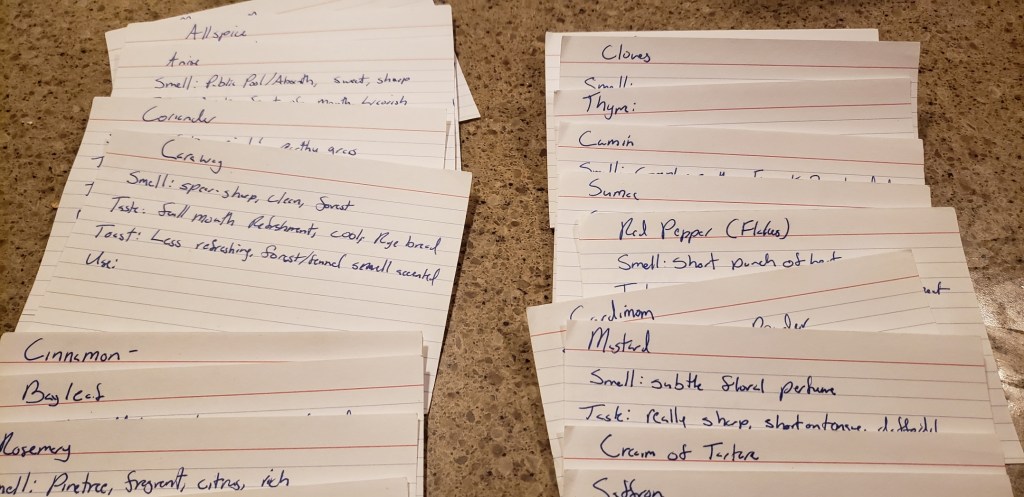 Allspice
Anise
Smell: Public Pool/Absinth, sweet, sharp
mouth
Coriander
Caraway
Smell: spear-sharp, clean, forest
Taste: full mouth Refreshment, cool, Rye bread
Toast: Less refreshing, forest/fennel smell accented
Use:
Cinnamon -
Bay leaf
Rosemary
Smell: Pinetree, fragrent, citrus, rich
Cloves
Smell:
Thyme:
Cumin
Smell:
Sumac
Red Pepper (Flakes)
Smell: Short punch of heat
Cardimom
Powder
Mustard
Smell: subtle floral perfume
Taste: really sharp, short on tongue,
Cream of Tartare
Saffron